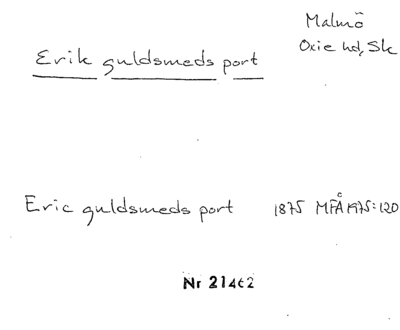 Malmö
Oxie hd, Sk
Erik guldsmeds port
Eric guldsmeds port 1875 MFÅ 1975:120
Nr 21462